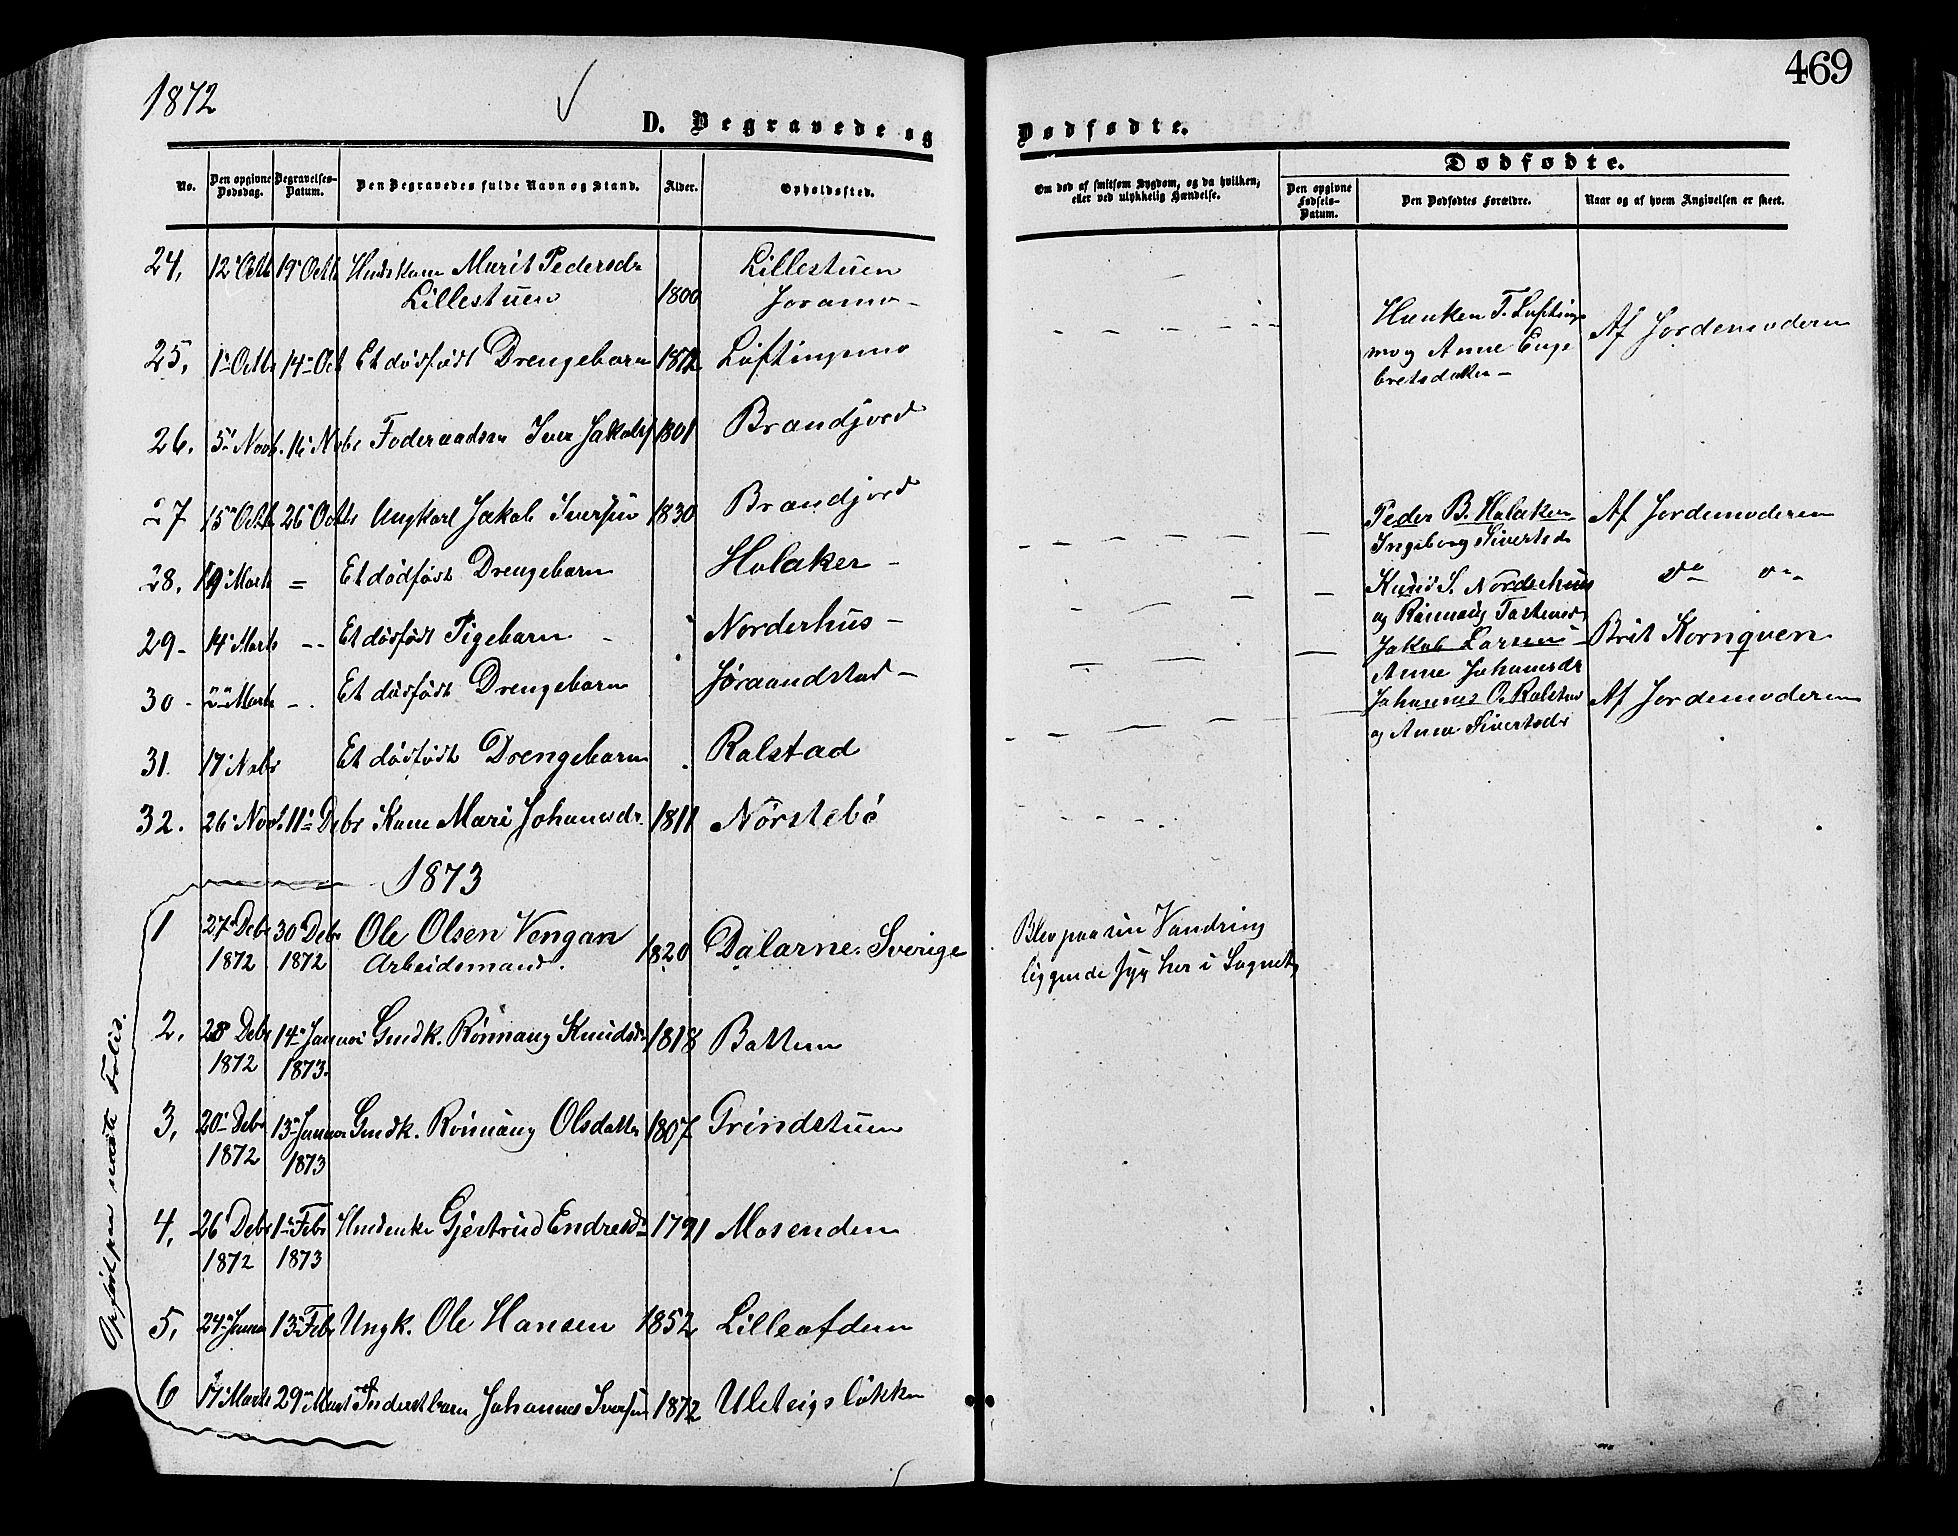 1872
469
D. Begravede og
Dødfødte.
Dødfødte.
No.
Den opgivne Dødsdag.
Begravelses-Datum.
Den Begravedes fulde Navn og Stand.
Alder.
Opholdssted.
Om død af smitsom Sygdom, og da hvilken,
eller ved ulykkelig Hændelse.
Den opgivne Fødsels-Datum.
Den Dødfødtes Forældre.
Naar og af hvem Angivelsen er skeet.
24, 12 Octb 19 Octb Marit Pedersdr Lillestuen
Lillestuen 1800
25, 1 Octb 14 Oct Et dødfødt Drengebarn 1872 Løftingsmo Af Jordemoderen
bretsdatter
26. 5 Novb. 16 Nobr Føderaadsm Iver Jakobs 1801 Brandjord
27 15 Octb 26 Octb Ungkarl Jakob Iversen 1830 Brandjord
28. 19 Marts = Et dødfødt Drengebarn Holaker Peder B. Holaker Af Jordemoderen
Ingeborg Sivertsd
29 14 Marts -- Et dødfødt Pigebarn Norderhus Knud S. Norderhus do do
og Rønnaug
30 Marts -- Et dødfødt Drengebarn Jøraandstad Jakob Larsen Brit Kornqven
Anne Johannsdr
31. 17 Nobr Et dødfødt Drengebarn Ralstad Johannes O. Ralstad Af Jordemoderen
og Anne Sivertsdr
32. 26 Novb. 11 Debr Kone Mari Johannesdr. 1811 Nørstebø
1873
1 27 Debr 30 Debr Ole Olsen Vengan 1820 Dalarne. Sverige Blev paa sin Vandring
1872 1872 Arbeidsmand. liggende syg her i Sognet
2. 28 Debr 14 Januar Gmdk. Rønnaug Knudsdr 1818 Battem
1872 1873.
3, 20 Debr 13 Januar Gmdk. Rønnaug Olsdatter 1807 Grindstuen
1872 1873
4, 26 Debr 1 Febr Gjertrud Endresd 1791 Mosenden
1872 1873
5, 24 Janua 13 Febr Ungk. Ole Hansen 1852
6 Marts 29 Mart Inderstbarn Johannes Iversen 1872 Uleteigsløkken
Opført paa næste Folio.